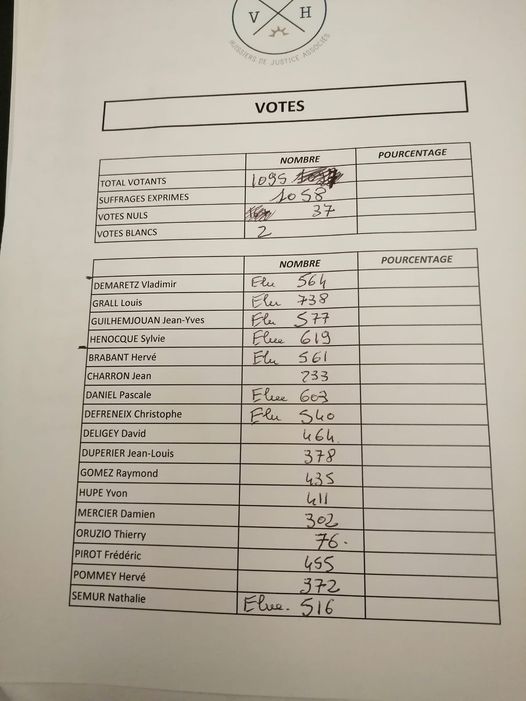 V H
HUISSIERS DE JUSTICE ASSOCIÉS
VOTES
NOMBRE POURCENTAGE
TOTAL VOTANTS 1095
SUFFRAGES EXPRIMES 1058
VOTES NULS 37
VOTES BLANCS 2
NOMBRE POURCENTAGE
DEMARETZ Vladimir Elu 564
GRALL Louis Elu 738
GUILHEMJOUAN Jean-Yves Elu 577
HENOCQUE Sylvie Elue 619
BRABANT Hervé Elu 561
CHARRON Jean 233
DANIEL Pascale Elue 603
DEFRENEIX Christophe Elu 540
DELIGEY David 464.
DUPERIER Jean-Louis 378
GOMEZ Raymond 435
HUPE Yvon 411
MERCIER Damien 302
ORUZIO Thierry 76.
PIROT Frédéric 455
POMMEY Hervé 372
SEMUR Nathalie Elue. 516